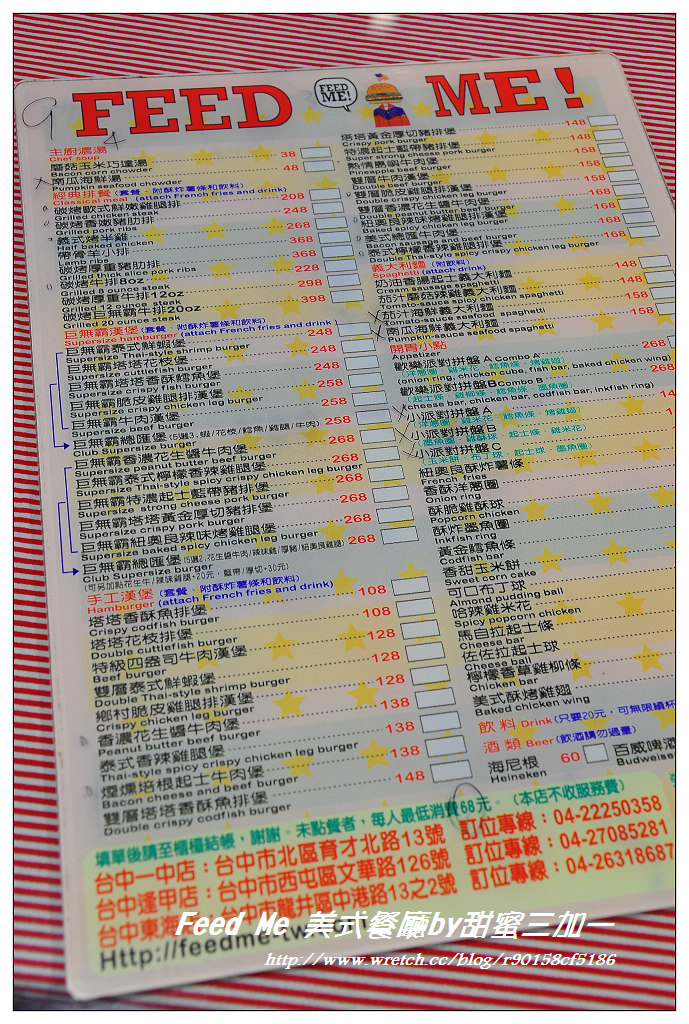 9
FEED ME!
FEED ME!
主廚濃湯
Chef soup
蘑菇玉米巧達湯 38
Bacon corn chowder
南瓜海鮮湯 48
Pumpkin seafood chowder
經典排餐 (套餐‧附酥炸薯條和飲料)
Classical meal (attach French fries and drink)
碳烤歐式鮮嫩雞腿排 208
Grilled chicken steak
碳烤香嫩豬肋排 248
Grilled pork ribs
義式烤半雞 268
Half baked chicken
帶骨羊小排 368
Lamb ribs
碳烤厚重豬肋排 368
Grilled thick slice pork ribs
碳烤牛排8oz 228
Grilled 8 ounce steak
碳烤厚重牛排12oz 298
Grilled 12 ounce steak
碳烤巨無霸牛排20oz 398
Grilled 20 ounce steak
巨無霸漢堡 (套餐‧附酥炸薯條和飲料)
Supersize hamburger (attach French fries and drink)
巨無霸泰式鮮蝦堡 248
Supersize Thai-style shrimp burger
巨無霸塔塔花枝堡 248
Supersize cuttlefish burger
巨無霸塔塔香酥鱈魚堡 248
Supersize crispy fish burger
巨無霸脆皮雞腿排漢堡 258
Supersize crispy chicken leg burger
巨無霸牛肉漢堡 258
Supersize beef burger
巨無霸總匯堡 (5選2,蝦/花枝/鱈魚/雞腿/牛肉) 258
Club Supersize burger
巨無霸香濃花生醬牛肉堡 268
Supersize peanut butter beef burger
巨無霸泰式檸檬香辣雞腿堡 268
Supersize Thai-style spicy crispy chicken leg burger
巨無霸特濃起士藍帶豬排堡 268
Supersize strong cheese pork burger
巨無霸塔塔黃金厚切豬排堡 268
Supersize crispy pork burger
巨無霸紐奧良辣味烤雞腿堡 268
Supersize baked spicy chicken leg burger
巨無霸總匯堡 (5選2,花生醬牛肉/辣味雞/厚豬/紐奧良雞腿) 268
Club Supersize burger
(可另加點花生牛/辣味雞腿+20元‧藍帶/厚切+30元)
手工漢堡 (套餐‧附酥炸薯條和飲料)
Hamburger (attach French fries and drink)
塔塔香酥魚排堡 108
Crispy codfish burger
塔塔花枝排堡 108
Double cuttlefish burger
特級四盎司牛肉漢堡 128
Beef burger
雙層泰式鮮蝦堡 128
Double Thai-style shrimp burger
鄉村脆皮雞腿排漢堡 128
Crispy chicken leg burger
香濃花生醬牛肉堡 138
Peanut butter beef burger
泰式香辣雞腿堡 138
Thai-style spicy crispy chicken leg burger
煙燻培根起士牛肉堡 138
Bacon cheese and beef burger
雙層塔塔香酥魚排堡 148
Double crispy codfish burger
塔塔黃金厚切豬排堡 148
Crispy pork burger
特濃起士藍帶豬排堡 148
Super strong cheese pork burger
熱情鳳梨牛肉堡 158
Pineapple beef burger
雙層牛肉漢堡 158
Double beef burger
雙層脆皮雞腿排漢堡 158
Double crispy chicken leg burger
雙層香濃花生醬牛肉堡 168
Double peanut butter beef burger
紐奧良辣味烤雞腿排漢堡 168
Baked spicy chicken leg burger
美式總匯牛肉堡 168
Bacon sausage and beef burger
泰式檸檬香辣雞腿排堡 168
Double Thai-style spicy crispy chicken leg burger
義大利麵 (附飲料)
Spaghetti (attach drink)
奶油香腸起士義大利麵 148
Cream sausage spaghetti
茄汁蘑菇辣雞義大利麵 148
Tomato-sauce spicy chicken spaghetti
茄汁海鮮義大利麵 158
Tomato-sauce seafood spaghetti
南瓜海鮮義大利麵 158
Pumpkin-sauce seafood spaghetti
開胃小點
Appetizer
歡樂派對拼盤 A Combo A 268
(洋蔥圈‧雞米花‧鱈魚條‧烤雞翅)
(onion ring, chicken cube, fish bar, baked chicken wing)
歡樂派對拼盤BCombo B 268
(起士條‧雞柳條‧鱈魚條‧墨魚圈)
(cheese bar, chicken bar, codfish bar, inkfish ring)
小派對拼盤 A 14
(洋蔥圈‧雞米花‧鱈魚條‧烤雞翅)
小派對拼盤 B
(墨魚圈‧雞酥球‧起士條‧雞米花)
小派對拼盤 C
(玉米餅‧布丁球‧起士球‧墨魚圈)
紐奧良酥炸薯條
French fries
香酥洋蔥圈
Onion ring
酥脆雞酥球
Popcorn chicken
酥炸墨魚圈
Inkfish ring
黃金鱈魚條
Codfish bar
香甜玉米餅
Sweet corn cake
可口布丁球
Almond pudding ball
哈辣雞米花
Spicy popcorn chicken
馬自拉起士條
Cheese bar
佐佐拉起士球
Cheese ball
檸檬香草雞柳條
Chicken bar
美式酥烤雞翅
Baked chicken wing
飲 料 Drink (只要20元，可無限續杯
酒 類 Beer (飲酒請勿過量)
海尼根 60 百威啤酒
Heineken Budweise
填單後請至櫃檯結帳，謝謝。未點餐者，每人最低消費68元。(本店不收服務費)
台中一中店：台中市北區育才北路13號 訂位專線：04-22250358
台中逢甲店：台中市西屯區文華路126號 訂位專線：04-27085281
台中東海 台中市龍井區中港路13之2號 訂位專線：04-26318687
Http://feedme-tw.com
Feed Me 美式餐廳by甜蜜三加一
http://www.wretch.cc/blog/r90158cf5186